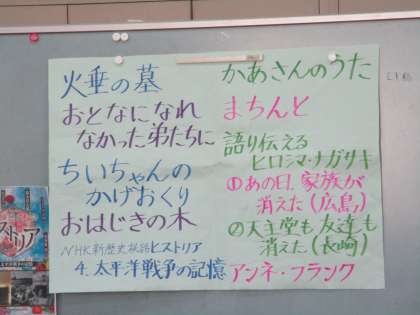 火垂の墓
おとなになれ
なかった弟たちに
ちいちゃんの
かげおくり
おはじきの木
NHK新歴史秘話ヒストリア
4.太平洋戦争の記憶
かあさんのうた
まちんと
語り伝える
ヒロシマ・ナガサキ
①あの日、家族が
消えた(広島)
②天主堂も友達も
消えた(長崎)
アンネ・フランク